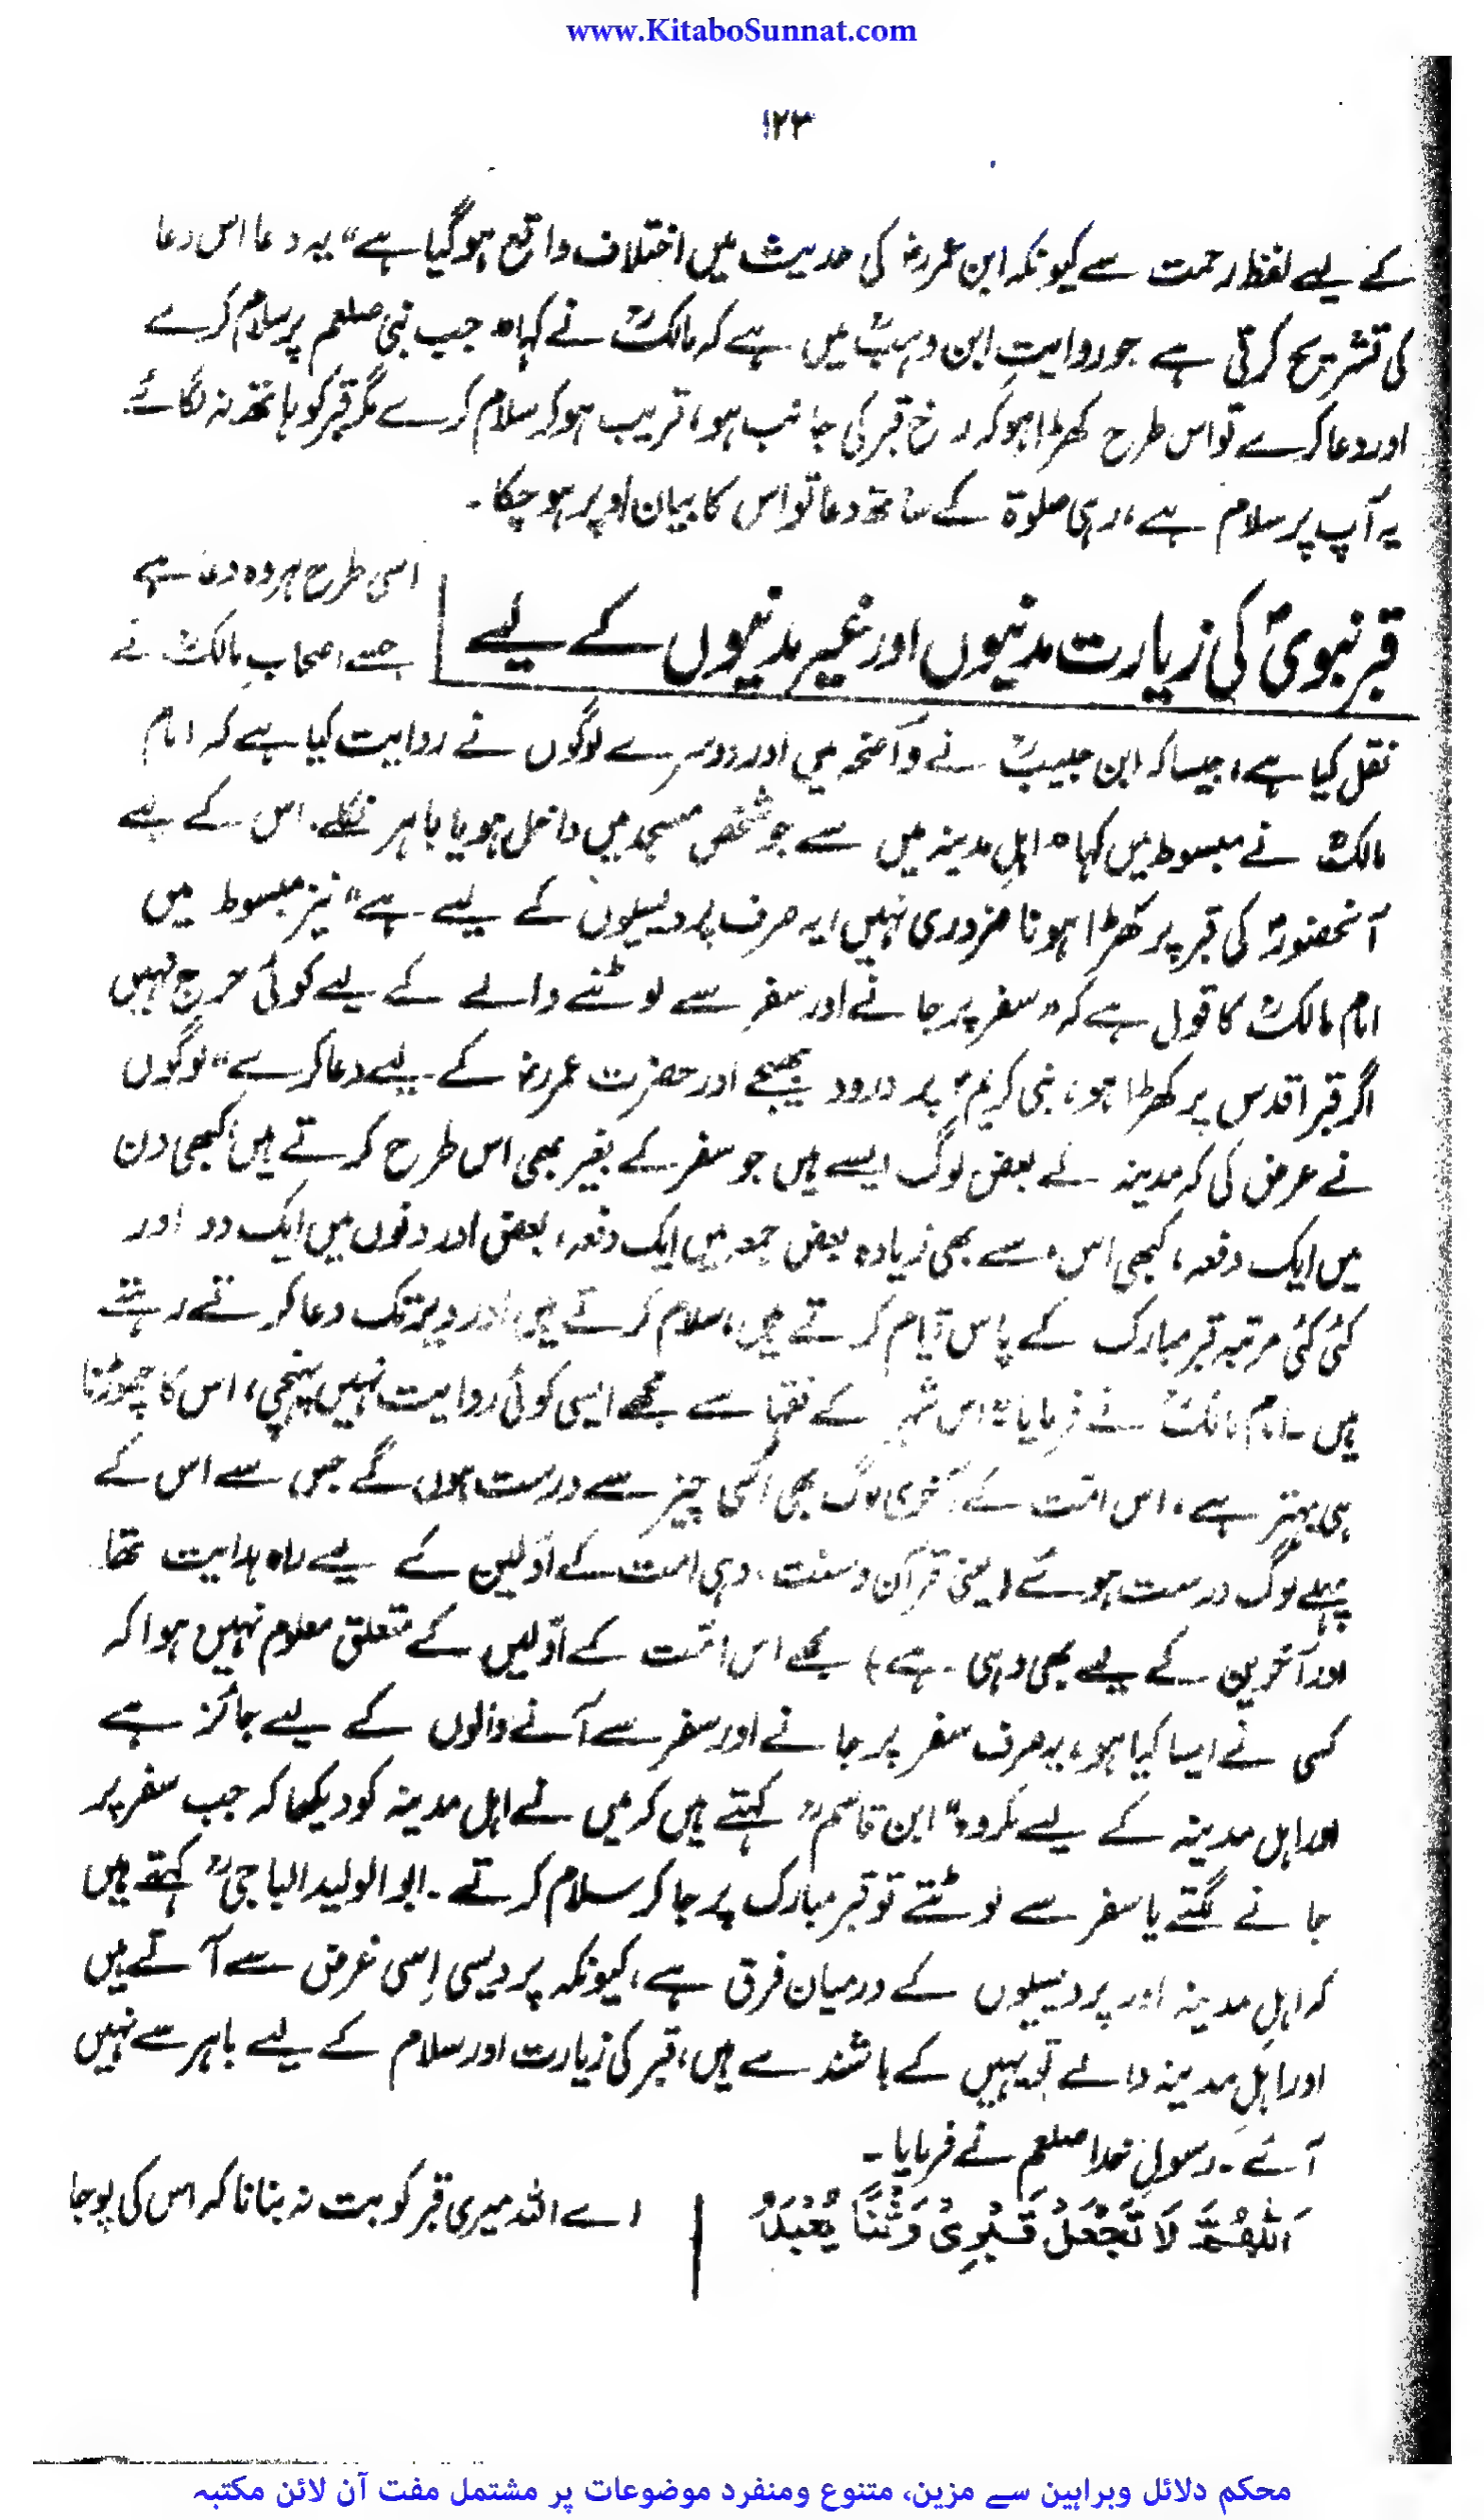 www.KitaboSunnat.com
۱۲۳
کے لیے لفظ رحمت سے کیونکہ ابن عمرؓ کی حدیث میں اختلاف واقع ہوگیا ہے“ یہ دعا اس دعا
کی تشریح کرتی ہے جو روایت ابن وہبؒ میں ہے کہ مالکؒ نے کہا” جب نبی صلعم پر سلام کرے
اور دعا کرے تو اس طرح کھڑا ہو کہ رخ قبر کی جانب ہو، قریب ہو کر سلام کرے مگر قبر کو ہاتھ نہ لگائے.
یہ آپ پر سلام ہے، رہی صلوۃ کے ساتھ دعا تو اس کا بیان اوپر ہو چکا ۔
قبر نبویؐ کی زیارت مدنیوں اور غیر مدنیوں کے لیے
اسی طرح ہر وہ دعا ہے
جسے اصحابِ مالکؒ نے
نقل کیا ہے، جیسا کہ ابن حبیبؒ نے واضحہ میں اور دوسرے لوگوں نے روایت کیا ہے کہ امام
مالکؒ نے مبسوط میں کہا” اہل مدینہ میں سے جو شخص مسجد میں داخل ہو یا باہر نکلے. اس کے لیے
آنحضورؐ کی قبر پر کھڑا ہونا ضروری نہیں، یہ صرف پردیسیوں کے لیے ہے“ نیز مبسوط میں
امام مالکؒ کا قول ہے کہ ”سفر پر جانے اور سفر سے لوٹنے والے کے لیے کوئی حرج نہیں
اگر قبر اقدس پر کھڑا ہو، نبی کریمؐ پر درود بھیجے اور حضرت عمرؓ کے لیے دعا کرے“ لوگوں
نے عرض کی کہ مدینہ کے بعض لوگ ایسے ہیں جو سفر کے بغیر بھی اس طرح کرتے ہیں، کبھی دن
میں ایک دفعہ، کبھی اس سے بھی زیادہ بعض جمعہ میں ایک دفعہ، بعض اور دنوں میں ایک دو اور
کئی کئی مرتبہ قبر مبارک کے پاس قیام کرتے ہیں، سلام کرتے ہیں اور دیر تک دعا کرتے رہتے
ہیں ۔ امام مالکؒ نے فرمایا ”اس شہر کے فقہا سے مجھے ایسی کوئی روایت نہیں پہنچی، اس کا چھوڑنا
ہی بہتر ہے، اس امت کے آخری لوگ بھی اسی چیز سے درست ہوں گے جس سے اس کے
پہلے لوگ درست ہوئے (یعنی قرآن و سنت، وہی امت کے اوّلین کے لیے راہ ہدایت تھا
اور آخرین کے لیے بھی وہی ہے) مجھے اس امت کے اوّلیں کے متعلق معلوم نہیں ہوا کہ
کسی نے ایسا کیا ہو، یہ صرف سفر پر جانے اور سفر سے آنے والوں کے لیے جائز ہے
اور اہل مدینہ کے لیے مکروہ“ ابن قاسمؒ کہتے ہیں کہ میں نے اہل مدینہ کو دیکھا کہ جب سفر پر
جانے لگتے یا سفر سے لوٹتے تو قبر مبارک پر جا کر سلام کرتے ۔ ابو الولید الباجیؒ کہتے ہیں
کہ اہلِ مدینہ اور پردیسیوں کے درمیان فرق ہے، کیونکہ پردیسی اِسی غرض سے آتے ہیں
اور اہلِ مدینہ والے تو یہیں کے باشندے ہیں، قبر کی زیارت اور سلام کے لیے باہر سے نہیں
آئے ۔ رسولِ خدا صلعم نے فرمایا ۔
اَللّٰهُمَّ لَا تَجْعَلْ قَبْرِیْ وَثَنًا یُعْبَدُ
اے اللہ میری قبر کو بت نہ بنانا کہ اس کی پوجا
محکم دلائل وبراہین سے مزین، متنوع ومنفرد موضوعات پر مشتمل مفت آن لائن مکتبہ